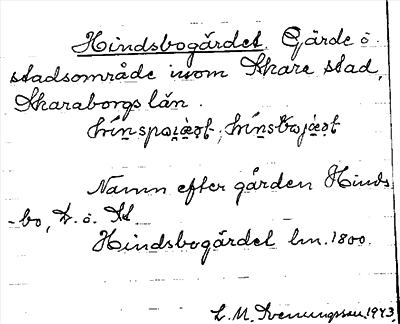 Hindsbogärdet. Gärde å
stadsområde inom Skara stad,
Skaraborgs län.
Namn efter gården Hinds-
-bo,
Hindsbogärdet lm. 1800.
L. M. Svenungsson 1943.